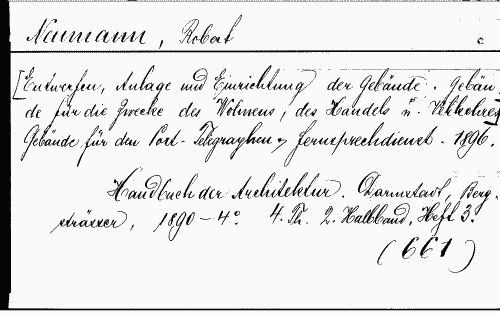 Neumann, Robert
[Entwerfen, Anlage und Einrichtung der Gebäude. Gebäu-
de für die Zwecke des Wohnens, des Handels u. Verkehres]
Gebäude für den Post- Telegraphen- & Fernsprechdienst. 1896.
Handbuch der Architektur. Darmstadt, Berg-
strässer, 1890 - 4°. 4. Th. 2. Halbband, Heft 3.
(661)